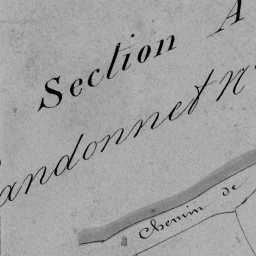 Section A
andonnet N°
Chemin de